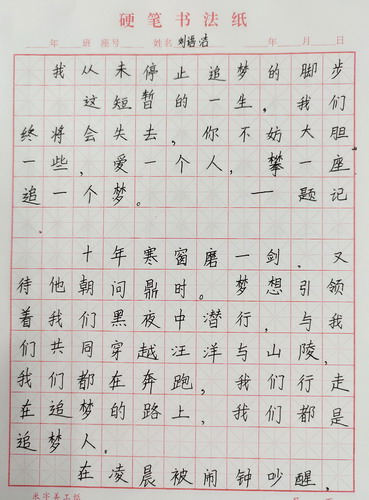 硬笔书法纸
年 班 座号 姓名 刘语洁 年 月 日
我从未停止追梦的脚步
这短暂的一生，我们
终将会失去，你不妨大胆
一些，爱一个人，攀一座
追一个梦。 ——题记
十年寒窗磨一剑．又
待他朝问鼎时。梦想引领
着我们黑夜中潜行，与我
们共同穿越汪洋与山陵，
我们都在奔跑，我们行走
在追梦的路上，我们都是
追梦人。
在凌晨被闹钟吵醒，